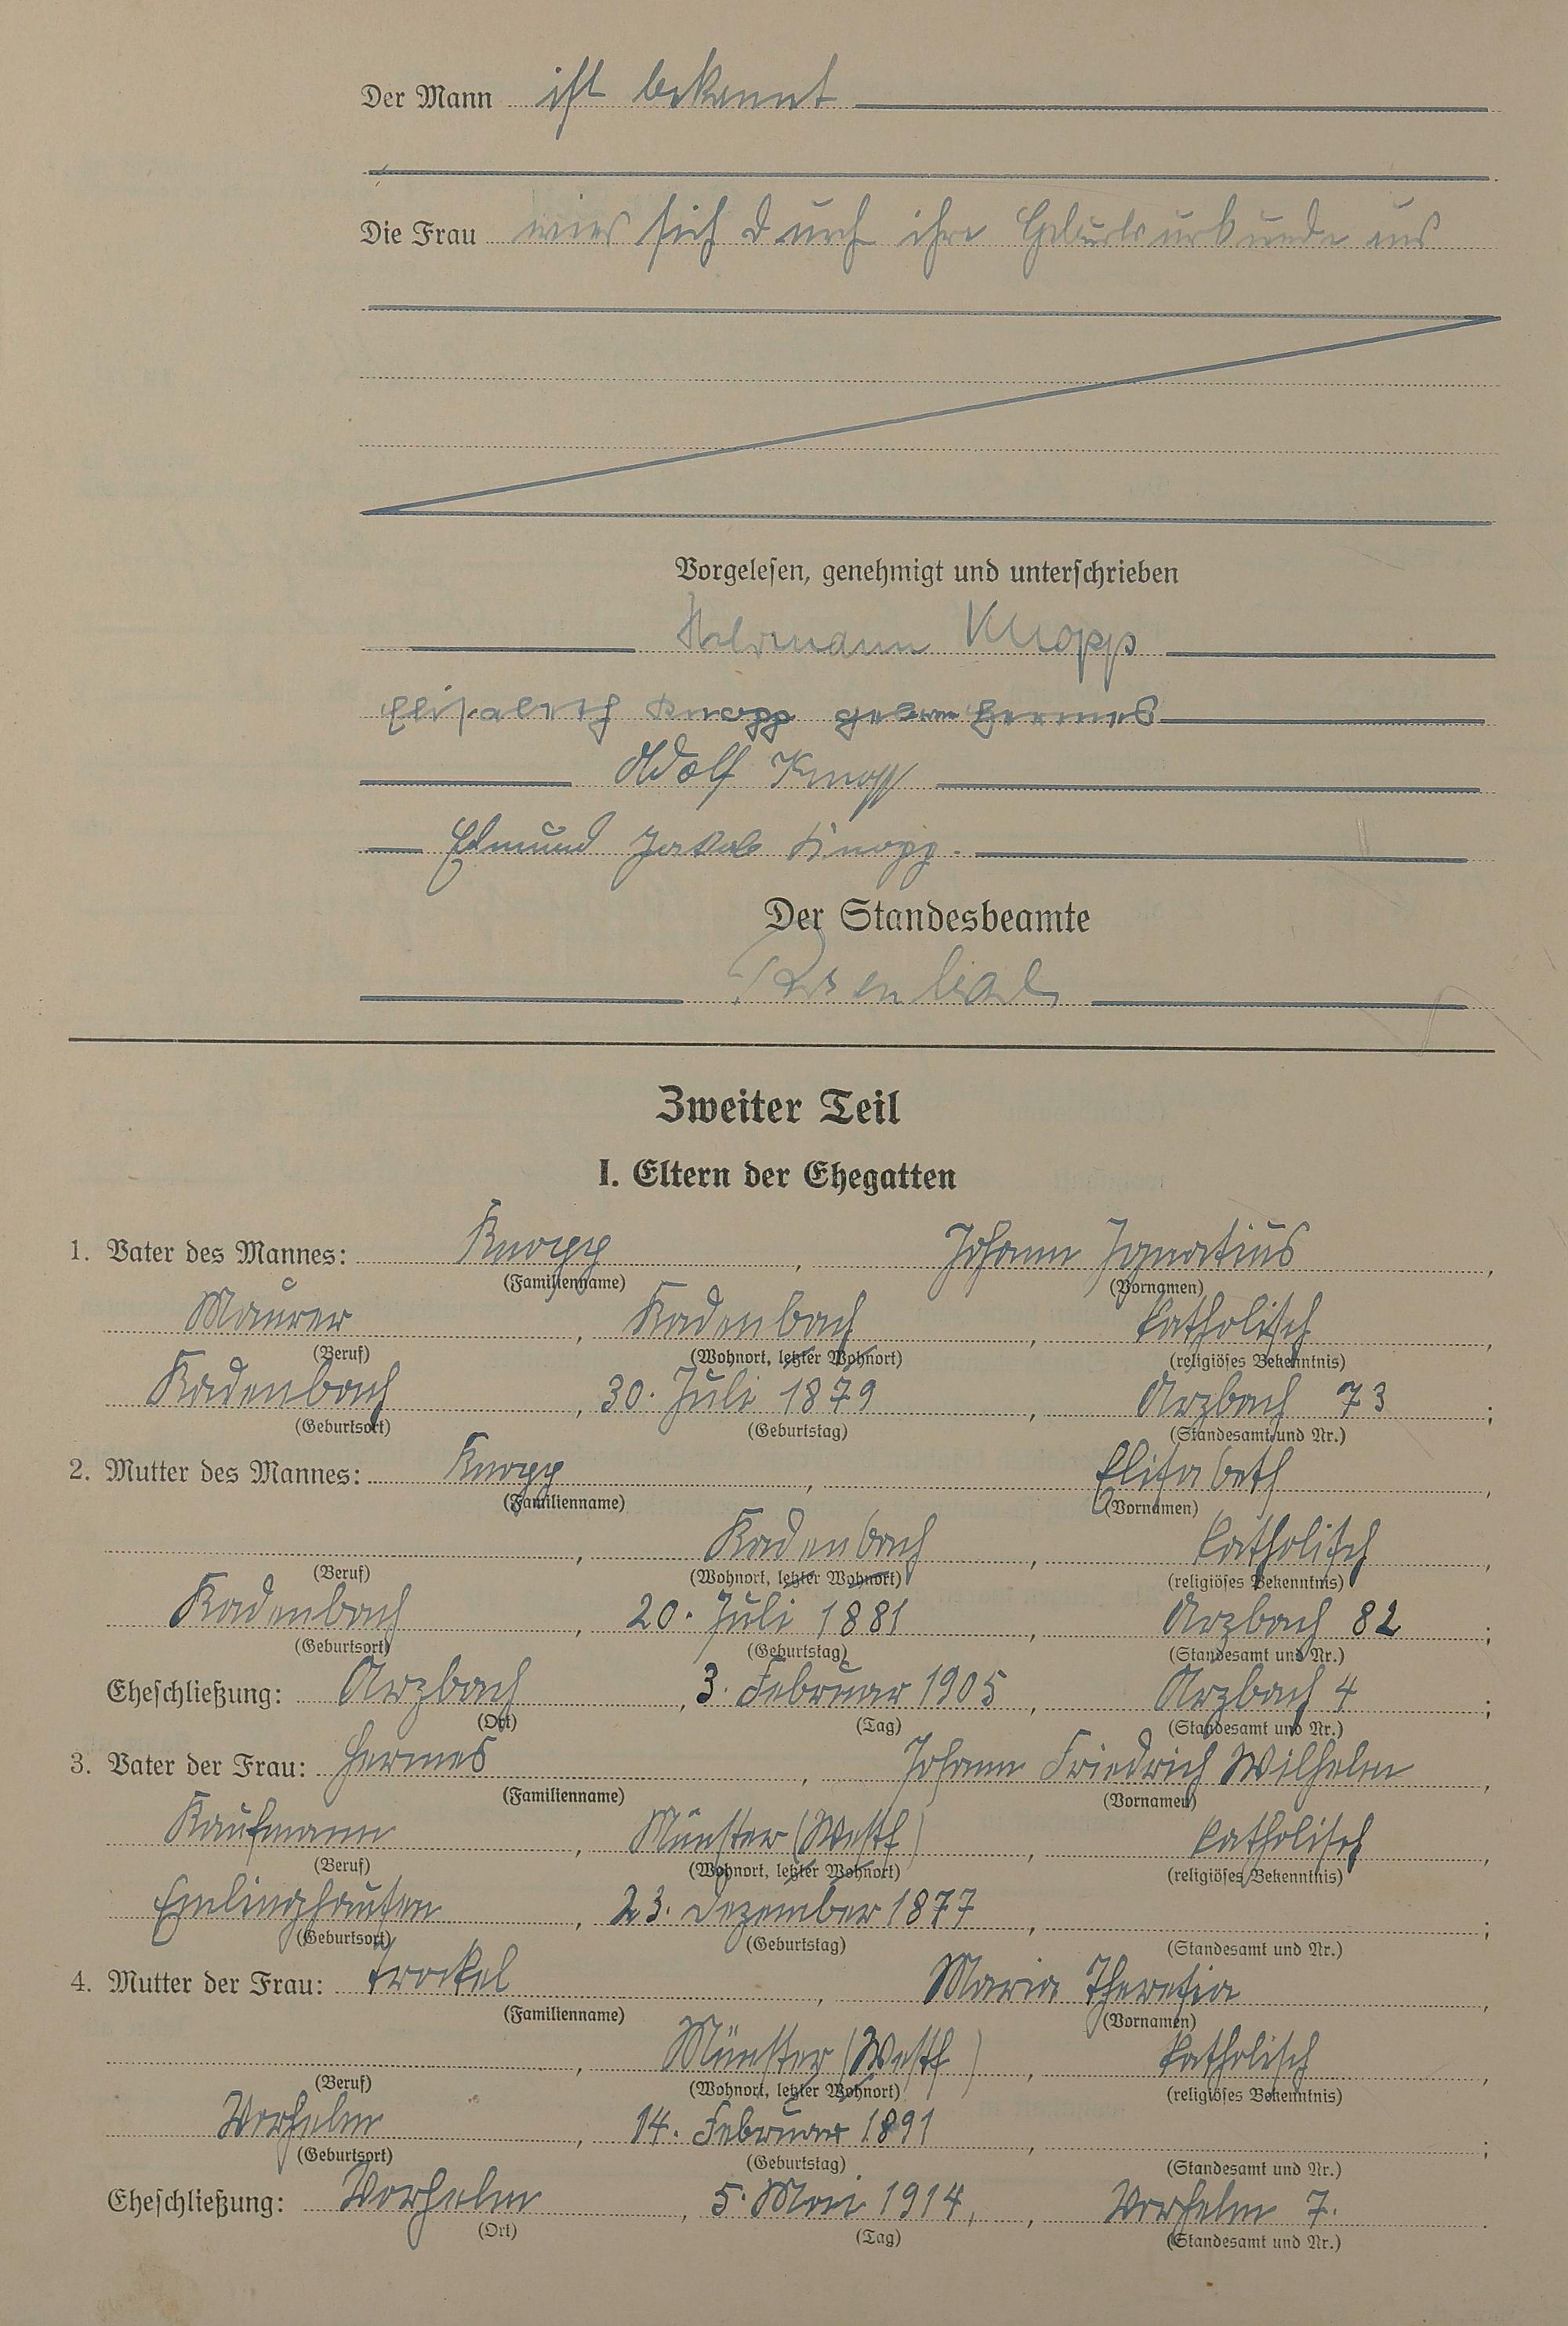 Der Mann ist bekannt
Die Frau wies sich durch ihre Geburtsurkunde aus
Vorgelesen, genehmigt und unterschrieben
Hermann Knopp
Elisabeth Knopp geborene Hermes
Adolf Knopp
Edmund Jakob Knopp.
Der Standesbeamte
Zweiter Teil
I. Eltern der Ehegatten
1. Vater des Mannes: Knopp, Johann Ignatius,
(Familienname) (Vornamen)
Maurer, Kadenbach, katholisch,
(Beruf) (Wohnort, letzter Wohnort) (religiöses Bekenntnis)
Kadenbach, 30. Juli 1879, Arzbach 73;
(Geburtsort) (Geburtstag) (Standesamt und Nr.)
2. Mutter des Mannes: Knopp, Elisabeth,
(Familienname) (Vornamen)
, Kadenbach, katholisch,
(Beruf) (Wohnort, letzter Wohnort) (religiöses Bekenntnis)
Kadenbach, 20. Juli 1881, Arzbach 82;
(Geburtsort) (Geburtstag) (Standesamt und Nr.)
Eheschließung: Arzbach, 3. Februar 1905, Arzbach 4;
(Ort) (Tag) (Standesamt und Nr.)
3. Vater der Frau: Hermes, Johann Friedrich Wilhelm,
(Familienname) (Vornamen)
Kaufmann, Münster (Westf), katholisch,
(Beruf) (Wohnort, letzter Wohnort) (religiöses Bekenntnis)
, 23. Dezember 1877, ;
(Geburtsort) (Geburtstag) (Standesamt und Nr.)
4. Mutter der Frau: Trockel, Maria Theresia,
(Familienname) (Vornamen)
, Münster (Westf), katholisch,
(Beruf) (Wohnort, letzter Wohnort) (religiöses Bekenntnis)
Vorhelm, 14. Februar 1891, ;
(Geburtsort) (Geburtstag) (Standesamt und Nr.)
Eheschließung: Vorhelm, 5. Mai 1914, , Vorhelm 7. .
(Ort) (Tag) (Standesamt und Nr.)